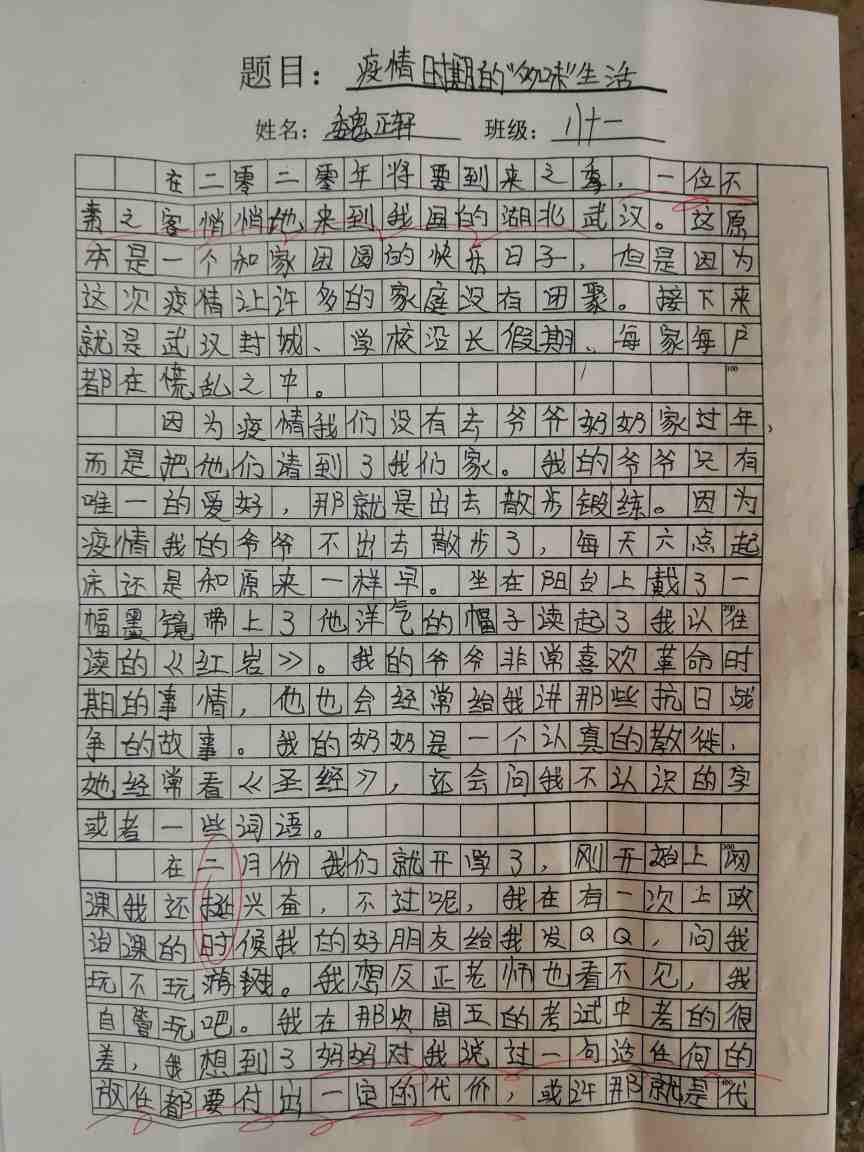 题目：疫情时期的“多味”生活
姓名：魏正轩 班级：八十一
在二零二零年将要到来之季，一位不
素之客悄悄地来到我国的湖北武汉。这原
本是一个和家团圆的快乐日子，但是因为
这次疫情让许多的家庭没有团聚。接下来
就是武汉封城、学校没长假期、每家每户
都在慌乱之中。
100
因为疫情我们没有去爷爷奶奶家过年，
而是把他们请到了我们家。我的爷爷只有
唯一的爱好，那就是出去散步锻练。因为
疫情我的爷爷不出去散步了，每天六点起
床还是和原来一样早。坐在阳台上戴了一
幅墨镜带上了他洋气的帽子读起了我以往
读的《红岩》。我的爷爷非常喜欢革命时
期的事情，他也会经常给我讲那些抗日战
争的故事。我的奶奶是一个认真的教徒，
她经常看《圣经》，还会问我不认识的字
或者一些词语。
在二月份我们就开学了，刚开始上网
课我还挺兴奋，不过呢，我在有一次上政
治课的时候我的好朋友给我发QQ，问我
玩不玩游戏。我想反正老师也看不见，我
自管玩吧。我在那次周五的考试中考的很
差，我想到了妈妈对我说过一句话任何的
放任都要付出一定的代价，或许那就是代